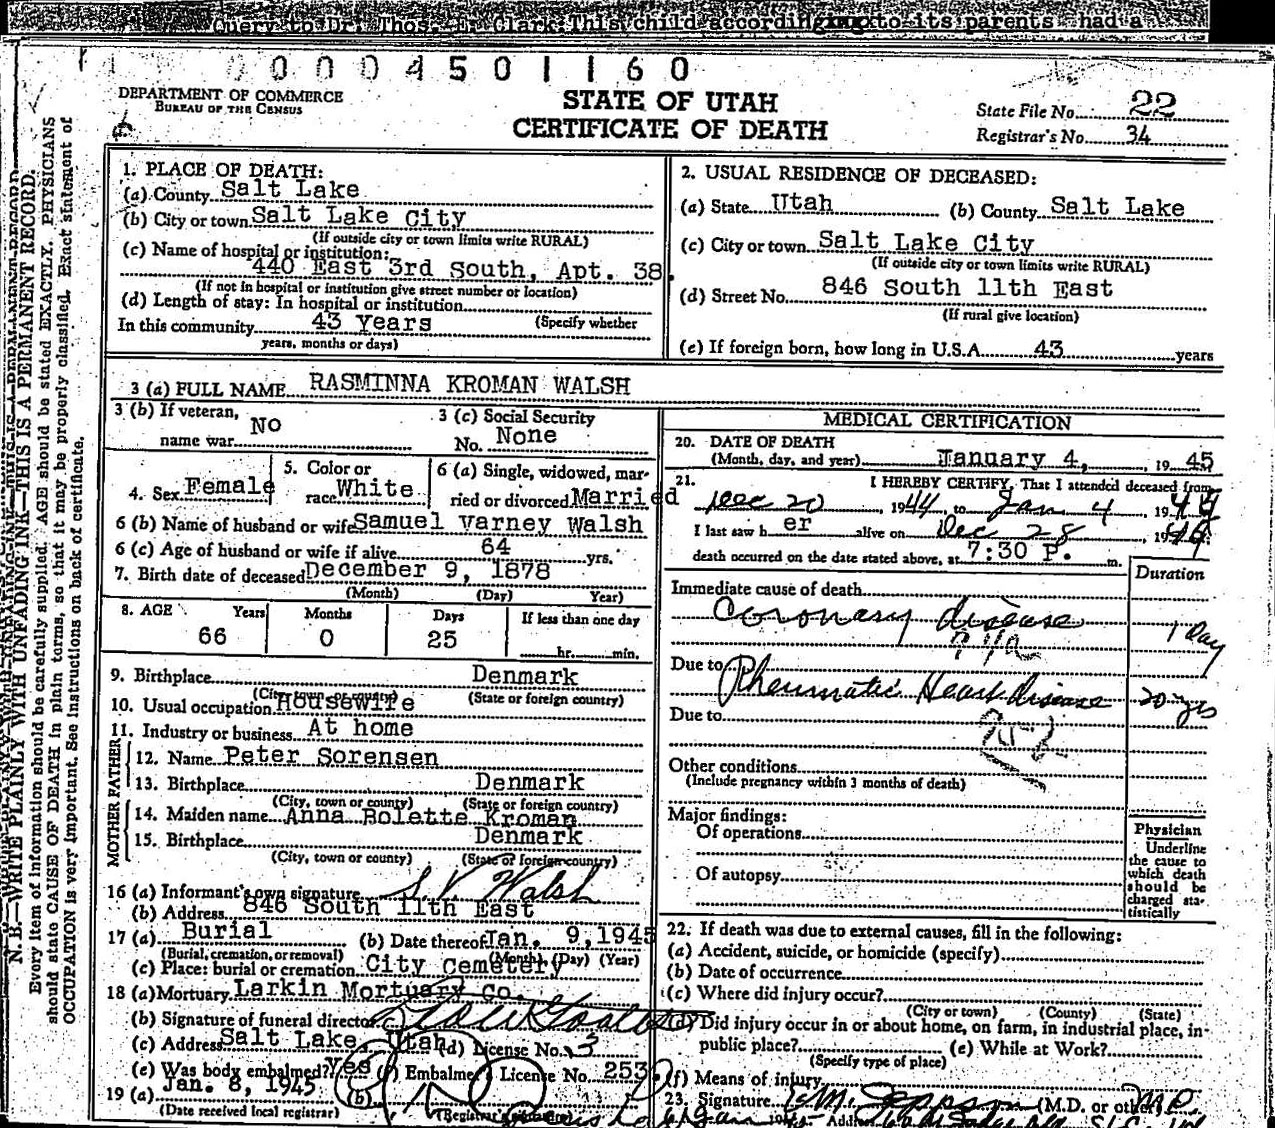 Query to Dr. Thos. Clark. This child according to its parents had a
0 0 0 0 4 5 0 1 1 6 0
DEPARTMENT OF COMMERCE
BUREAU OF THE CENSUS
STATE OF UTAH
CERTIFICATE OF DEATH
State File No. 22
Registrar's No. 34
N. B.—WRITE PLAINLY WITH UNFADING INK—THIS IS A PERMANENT RECORD.
Every item of information should be carefully supplied. AGE should be stated EXACTLY. PHYSICIANS
should state CAUSE OF DEATH in plain terms, so that it may be properly classified. Exact statement of
OCCUPATION is very important. See instructions on back of certificate.
1. PLACE OF DEATH:
(a) County Salt Lake
(b) City or town Salt Lake City
(If outside city or town limits write RURAL)
(c) Name of hospital or institution:
440 East 3rd South, Apt. 38.
(If not in hospital or institution give street number or location)
(d) Length of stay: In hospital or institution
In this community 43 Years (Specify whether
years, months or days)
2. USUAL RESIDENCE OF DECEASED:
(a) State Utah (b) County Salt Lake
(c) City or town Salt Lake City
(If outside city or town limits write RURAL)
(d) Street No. 846 South 11th East
(If rural give location)
(e) If foreign born, how long in U.S.A. 43 years
3 (a) FULL NAME RASMINNA KROMAN WALSH
3 (b) If veteran, name war No
3 (c) Social Security No. None
4. Sex Female
5. Color or race White
6 (a) Single, widowed, married or divorced Married
6 (b) Name of husband or wife Samuel Varney Walsh
6 (c) Age of husband or wife if alive 64 yrs.
7. Birth date of deceased December 9, 1878
(Month) (Day) Year)
8. AGE Years Months Days If less than one day
66 0 25 hr. min.
9. Birthplace Denmark
(City, town or county) (State or foreign country)
10. Usual occupation Housewife
11. Industry or business At home
FATHER
12. Name Peter Sorensen
13. Birthplace Denmark
(City, town or county) (State or foreign country)
MOTHER
14. Maiden name Anna Bolette Kroman
15. Birthplace Denmark
(City, town or county) (State or foreign country)
16 (a) Informant's own signature S V Walsh
(b) Address 846 South 11th East
17 (a) Burial (b) Date thereof Jan. 9, 1945
(Burial, cremation, or removal) (Month) (Day) (Year)
(c) Place: burial or cremation City Cemetery
18 (a) Mortuary Larkin Mortuary Co.
(b) Signature of funeral director
(c) Address Salt Lake, Utah (d) License No. 3
(e) Was body embalmed? Yes (f) Embalmer License No. 253
19 (a) Jan. 8, 1945 (b)
(Date received local registrar) (Registrar's signature)
MEDICAL CERTIFICATION
20. DATE OF DEATH
(Month, day, and year) January 4, 1945
21. I HEREBY CERTIFY, That I attended deceased from
Dec 20, 1944, to Jan 4, 19
I last saw her alive on Dec 28, 19
death occurred on the date stated above, at 7:30 P. m.
Duration
Immediate cause of death
Coronary disease 1 Day
Due to Rheumatic Heart disease 20 yrs
Due to
Other conditions
(Include pregnancy within 3 months of death)
Major findings:
Of operations
Of autopsy
Physician
Underline
the cause to
which death
should be
charged sta-
tistically
22. If death was due to external causes, fill in the following:
(a) Accident, suicide, or homicide (specify)
(b) Date of occurrence
(c) Where did injury occur?
(City or town) (County) (State)
(d) Did injury occur in or about home, on farm, in industrial place, in
public place? (e) While at Work?
(Specify type of place)
(f) Means of injury
23. Signature M. Jeppson (M.D. or other) M.D.